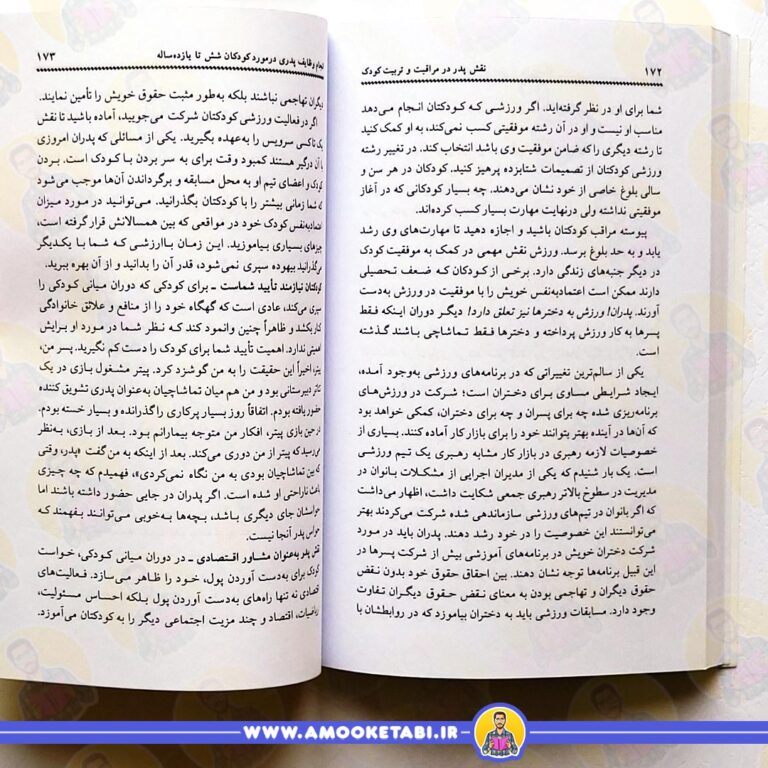 ۱۷۲ نقش پدر در مراقبت و تربیت کودک
شما برای او در نظر گرفته‌اید. اگر ورزشی که کودکتان انجام می‌دهد
مناسب او نیست و او در آن رشته موفقیتی کسب نمی‌کند، به او کمک کنید
تا رشته دیگری را که ضامن موفقیت وی باشد انتخاب کند. در تغییر رشته
ورزشی کودکتان از تصمیمات شتابزده پرهیز کنید. کودکان در هر سن و
سالی بلوغ خاصی از خود نشان می‌دهند. چه بسیار کودکانی که در آغاز
موفقیتی نداشته ولی درنهایت مهارت بسیار کسب کرده‌اند.
پیوسته مراقب کودکتان باشید و اجازه دهید تا مهارت‌های وی رشد
یابد و به حد بلوغ برسد. ورزش نقش مهمی در کمک به موفقیت کودک
در دیگر جنبه‌های زندگی دارد. برخی از کودکان که ضعف تحصیلی
دارند ممکن است اعتمادبه‌نفس خویش را با موفقیت در ورزش به‌دست
آورند. پدران! ورزش به دخترها نیز تعلق دارد! دیگر دوران اینکه فقط
پسرها به کار ورزش پرداخته و دخترها فقط تماشاچی باشند گذشته
است.
یکی از سالم‌ترین تغییراتی که در برنامه‌های ورزشی به‌وجود آمده،
ایجاد شرایطی مساوی برای دختران است؛ شرکت در ورزش‌های
برنامه‌ریزی شده چه برای پسران و چه برای دختران، کمکی خواهد بود
که آن‌ها در آینده بهتر بتوانند خود را برای بازار کار آماده کنند. بسیاری از
خصوصیات لازمه رهبری در بازار کار مشابه رهبری یک تیم ورزشی
است. یک بار شنیدم که یکی از مدیران اجرایی از مشکلات بانوان در
مدیریت در سطوح بالاتر رهبری جمعی شکایت داشت، اظهار می‌داشت
که اگر بانوان در تیم‌های ورزشی سازماندهی شده شرکت می‌کردند بهتر
می‌توانستند این خصوصیت را در خود رشد دهند. پدران باید در مورد
شرکت دختران خویش در برنامه‌های آموزشی بیش از شرکت پسرها در
این قبیل برنامه‌ها توجه نشان دهند. بین احقاق حقوق خود بدون نقض
حقوق دیگران و تهاجمی بودن به معنای نقض حقوق دیگران تفاوت
وجود دارد. مسابقات ورزشی باید به دختران بیاموزد که در روابطشان با
وظایف پدری درمورد کودکان شش تا یازده‌ساله ۱۷۳
دیگران تهاجمی نباشند بلکه به‌طور مثبت حقوق خویش را تأمین نمایند.
اگر در فعالیت ورزشی کودکتان شرکت می‌جویید، آماده باشید تا نقش
یک تاکسی سرویس را به‌عهده بگیرید. یکی از مسائلی که پدران امروزی
با آن درگیر هستند کمبود وقت برای به سر بردن با کودک است. بردن
کودک و اعضای تیم او به محل مسابقه و برگرداندن آن‌ها موجب می‌شود
که شما زمانی بیشتر را با کودکتان بگذرانید. می‌توانید در مورد میزان
اعتمادبه‌نفس کودک خود در مواقعی که بین همسالانش قرار گرفته است،
چیزهای بسیاری بیاموزید. این زمان باارزشی که شما با یکدیگر
می‌گذرانید بیهوده سپری نمی‌شود، قدر آن را بدانید و از آن بهره ببرید.
کودکتان نیازمند تأیید شماست ـ برای کودکی که دوران میانی کودکی را
سپری می‌کند، عادی است که گهگاه خود را از منافع و علائق خانوادگی
کنار بکشد و ظاهراً چنین وانمود کند که نظر شما در مورد او برایش
اهمیتی ندارد. اهمیت تأیید شما برای کودک را دست کم نگیرید. پسر من،
پیتر، اخیراً این حقیقت را به من گوشزد کرد. پیتر مشغول بازی در یک
تئاتر دبیرستانی بود و من هم میان تماشاچیان به‌عنوان پدری تشویق کننده
حضور یافته بودم. اتفاقاً روز بسیار پرکاری را گذرانده و بسیار خسته بودم.
در حین بازی پیتر، افکار من متوجه بیمارانم بود. بعد از بازی، به‌نظر
می‌رسید که پیتر از من دوری می‌کند. بعد از اینکه به من گفت «پدر، وقتی
که بین تماشاچیان بودی به من نگاه نمی‌کردی»، فهمیدم که چه چیزی
باعث ناراحتی او شده است. اگر پدران در جایی حضور داشته باشند اما
حواسشان جای دیگری باشد، بچه‌ها به‌خوبی می‌توانند بفهمند که
حواس پدر آنجا نیست.
نقش پدر به‌عنوان مشاور اقتصادی ـ در دوران میانی کودکی، خواست
کودک برای به‌دست آوردن پول، خود را ظاهر می سازد. فعالیت‌های
اقتصادی نه تنها راه‌های به‌دست آوردن پول بلکه احساس مسئولیت،
ریاضیات، اقتصاد و چند مزیت اجتماعی دیگر را به کودکتان می‌آموزد.
WWW.AMOOKETABI.IR